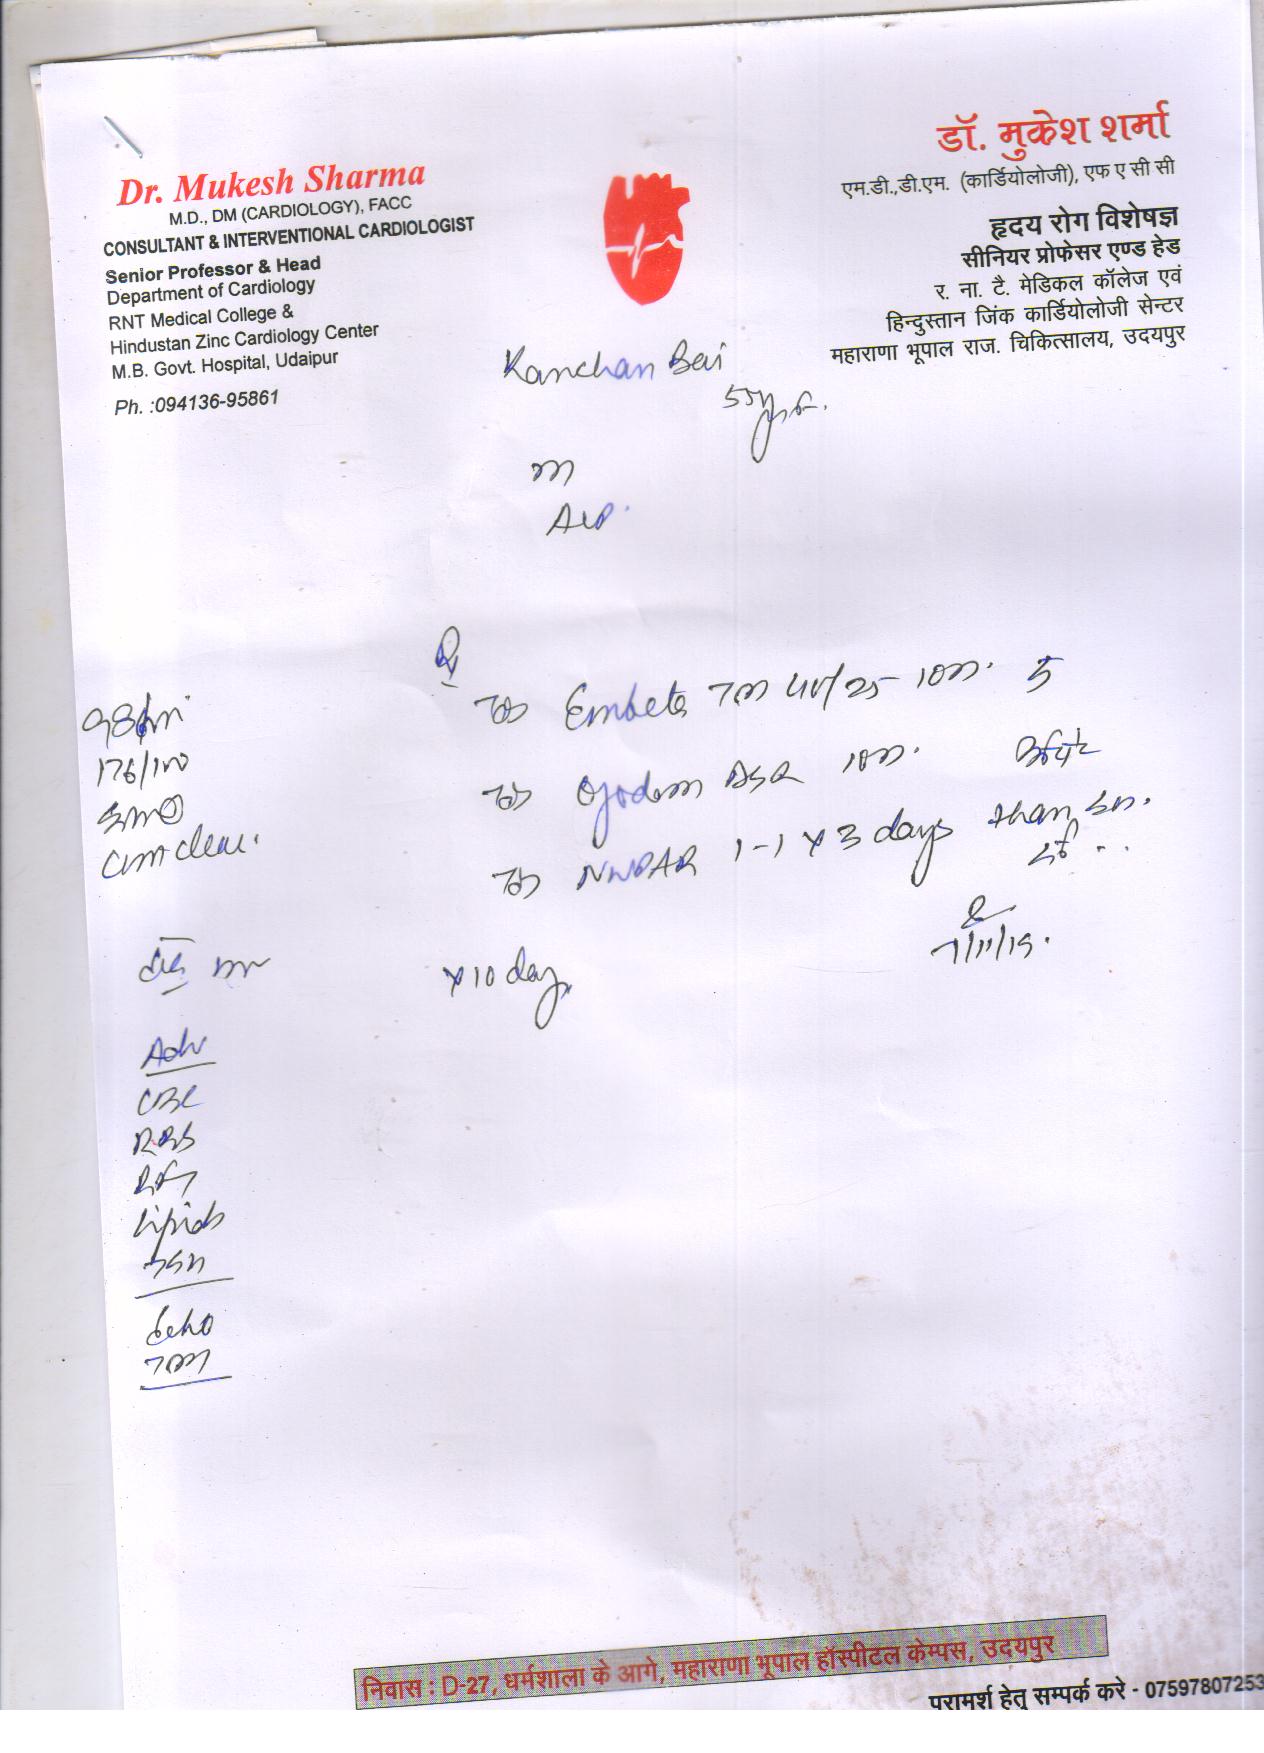 Dr. Mukesh Sharma
M.D., DM (CARDIOLOGY), FACC
CONSULTANT & INTERVENTIONAL CARDIOLOGIST
Senior Professor & Head
Department of Cardiology
RNT Medical College &
Hindustan Zinc Cardiology Center
M.B. Govt. Hospital, Udaipur
Ph. :094136-95861
डॉ. मुकेश शर्मा
एम.डी.,डी.एम. (कार्डियोलोजी), एफ ए सी सी
हृदय रोग विशेषज्ञ
सीनियर प्रोफेसर एण्ड हेड
र. ना. टै. मेडिकल कॉलेज एवं
हिन्दुस्तान जिंक कार्डियोलोजी सेन्टर
महाराणा भूपाल राज. चिकित्सालय, उदयपुर
Kanchan Bai
55
98/m
176/100
clear.
Embeta Tm 40/25 10
DSR 10
1-1 x 3 days than
7/11/19.
x 10 day
Adv
CBC
RBS
RFT
Lipids
TSH
Echo
निवास : D-27, धर्मशाला के आगे, महाराणा भूपाल हॉस्पीटल केम्पस, उदयपुर
परामर्श हेतु सम्पर्क करे - 07597807253